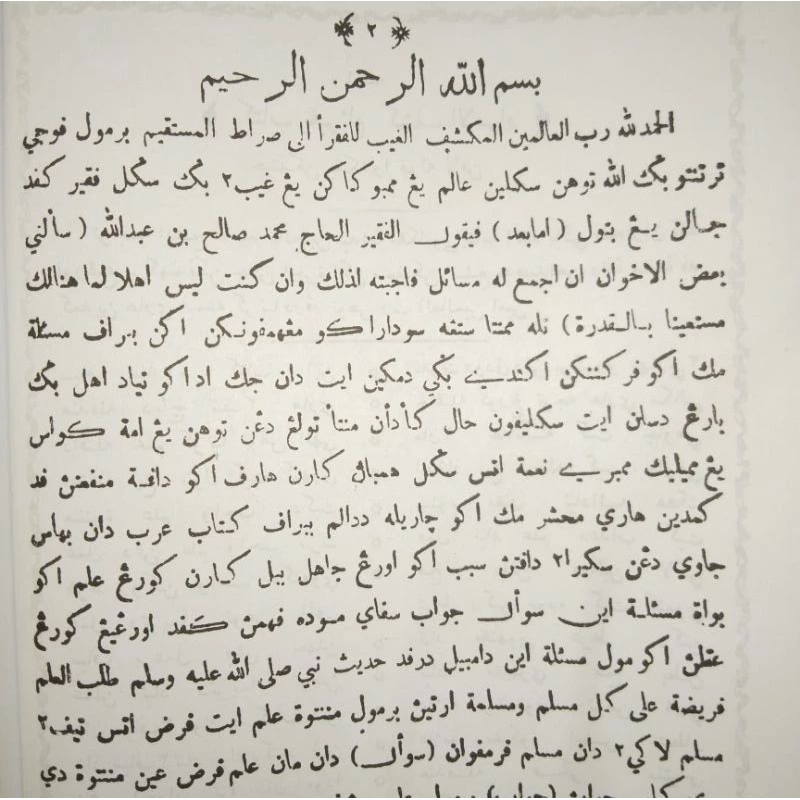 ٢
بسم الله الرحمن الرحيم
الحمد لله رب العالمين المكشف الغيب للفقرأ الى صراط المستقيم برمول فوجي
ترتنتو بݢ الله توهن سكلين عالم يڠ ممبوكاكن يڠ غيب٢ بݢ سݢل فقير كفد
جالن يڠ بتول (امابعد) فيقول الفقير الحاج محمد صالح بن عبدالله (سألني
بعض الاخوان ان اجمع له مسائل فاجبته اذلك وان كنت ليس اهلا لما هنالك
مستعينا بالقدرة) تله ممنتا ستڠه سوداراكو مڠهمفونكن اكن ببراف مسئلة
مك اكو فركننكن اكندي بݢي دمكين ايت دان جك اداكو تياد اهل بݢ
بارڠ دسان ايت سكليفون حال كأدأن منتأ تولڠ دڠن توهن يڠ امة كواس
يڠ مميليك ممبري نعمة اتس سݢل همباڽ كارن هارف اكو دافة منفعتڽ فد
كمدين هاري محشر مك اكو چاريله ددالم ببراف كتاب عرب دان بهاس
جاوي دڠن سكيرا٢ دافتن سبب اكو اورڠ جاهل ببل كارن كورڠ علم اكو
بواة مسئلة اين سوأل جواب سفاي موده فهمن كفد اورڠيڠ كورڠ
عقلن اكو مول مسئلة اين دامبيل درفد حديث نبي صلى الله عليه وسلم طلب العلم
فريضة على كل مسلم ومسلمة ارتين برمول مننتوة علم ايت فرض اتس تيف٢
مسلم لاكي٢ دان مسلم فرمفوان (سوأل) دان مان علم فرض عين مننتوة دي